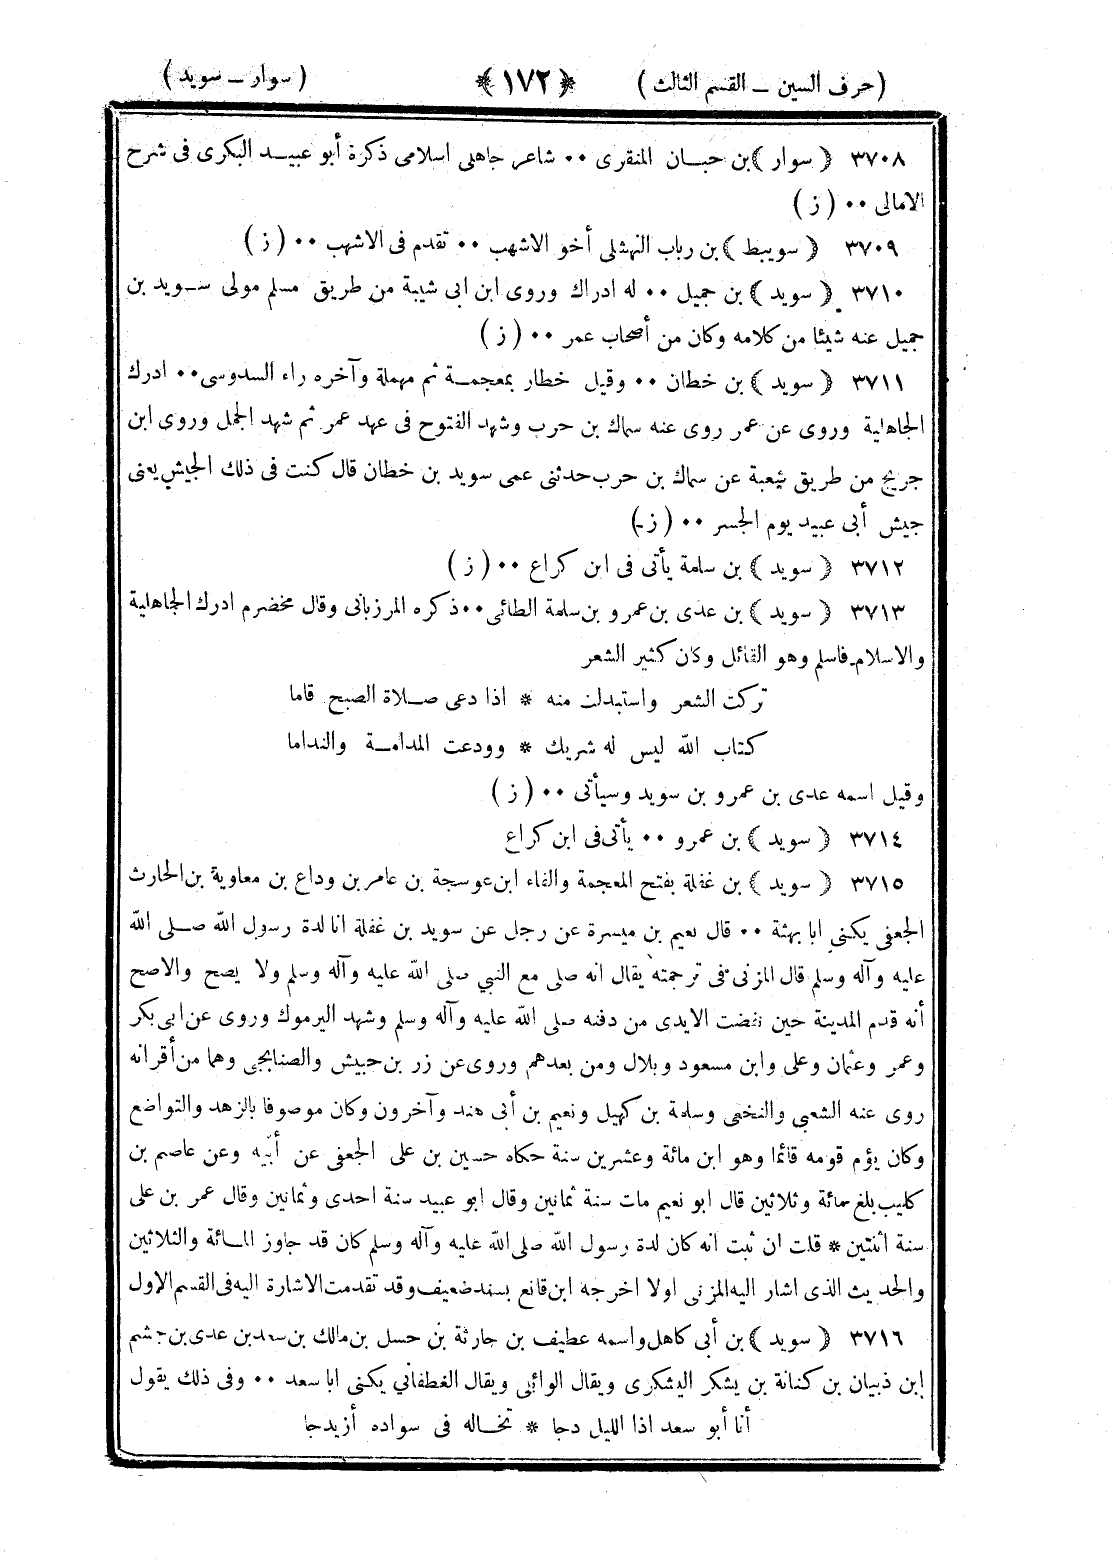 ( حرف السين ـ القسم الثالث ) ﴿ ١٧٢ ﴾ ( سوار ـ سويد )
٣٧٠٨ ( سوار ) بن حبان المنقرى ٠٠ شاعر جاهلى اسلامى ذكرة أبو عبيد البكرى فى شرح
الامالى ٠٠ ( ز )
٣٧٠٩ ( سويبط ) بن رباب النهشلى أخو الاشهب ٠٠ تقدم فى الاشهب ٠٠ ( ز )
٣٧١٠ ( سويد ) بن جميل ٠٠ له ادراك وروى ابن ابى شيبة من طريق مسلم مولى سويد بن
جميل عنه شيئا من كلامه وكان من أصحاب عمر ٠٠ ( ز )
٣٧١١ ( سويد ) بن خطان ٠٠ وقيل خطار بمعجمة ثم مهملة وآخره راء السدوسى ٠٠ ادرك
الجاهلية وروى عن عمر روى عنه سماك بن حرب وشهد الفتوح فى عهد عمر ثم شهد الجمل وروى ابن
جريج من طريق شعبة عن سماك بن حرب حدثنى عمى سويد بن خطان قال كنت فى ذلك الجيش يعنى
جيش أبى عبيد يوم الجسر ٠٠ ( ز )
٣٧١٢ ( سويد ) بن سلمة يأتى فى ابن كراع ٠٠ ( ز )
٣٧١٣ ( سويد ) بن عدى بن عمرو بن سلمة الطائى ٠٠ ذكره المرزبانى وقال مخضرم ادرك الجاهلية
والاسلام فاسلم وهو القائل وكان كثير الشعر
تركت الشعر واستبدلت منه * اذا دعى صلاة الصبح قاما
كتاب الله ليس له شريك * وودعت المدامة والنداما
وقيل اسمه عدى بن عمرو بن سويد وسيأتى ٠٠ ( ز )
٣٧١٤ ( سويد ) بن عمرو ٠٠ يأتى فى ابن كراع
٣٧١٥ ( سويد ) بن غفلة بفتح المعجمة والفاء ابن عوسجة بن عامر بن وداع بن معاوية بن الحارث
الجعفى يكنى ابا بهثة ٠٠ قال نعيم بن ميسرة عن رجل عن سويد بن غفلة انا لدة رسول الله صلى الله
عليه وآله وسلم قال المزنى فى ترجمته يقال انه صلى مع النبي صلى الله عليه وآله وسلم ولا يصح والاصح
أنه قدم المدينة حين نفضت الايدى من دفنه صلى الله عليه وآله وسلم وشهد اليرموك وروى عن ابى بكر
وعمر وعثمان وعلى وابن مسعود وبلال ومن بعدهم وروى عن زر بن حبيش والصنابجى وهما من أقرانه
روى عنه الشعبي والنخعى وسلمة بن كهيل ونعيم بن أبى هند وآخرون وكان موصوفا بالزهد والتواضع
وكان يؤم قومه قائما وهو ابن مائة وعشرين سنة حكاه حسين بن على الجعفى عن أبيه وعن عاصم بن
كليب بلغ مائة وثلاثين قال ابو نعيم مات سنة ثمانين وقال ابو عبيد سنة احدى وثمانين وقال عمر بن على
سنة اثنتين * قلت ان ثبت انه كان لدة رسول الله صلى الله عليه وآله وسلم كان قد جاوز المائة والثلاثين
والحديث الذى اشار اليه المزنى اولا اخرجه ابن قانع بسند ضعيف وقد تقدمت الاشارة اليه فى القسم الاول
٣٧١٦ ( سويد ) بن أبى كاهل واسمه عطيف بن حارثة بن حسل بن مالك بن سعد بن عدى بن جشم
ابن ذبيان بن كنانة بن يشكر اليشكرى ويقال الوائلى ويقال الغطفاني يكنى ابا سعد ٠٠ وفى ذلك يقول
أنا أبو سعد اذا الليل دجا * تخاله فى سواده أزيدجا